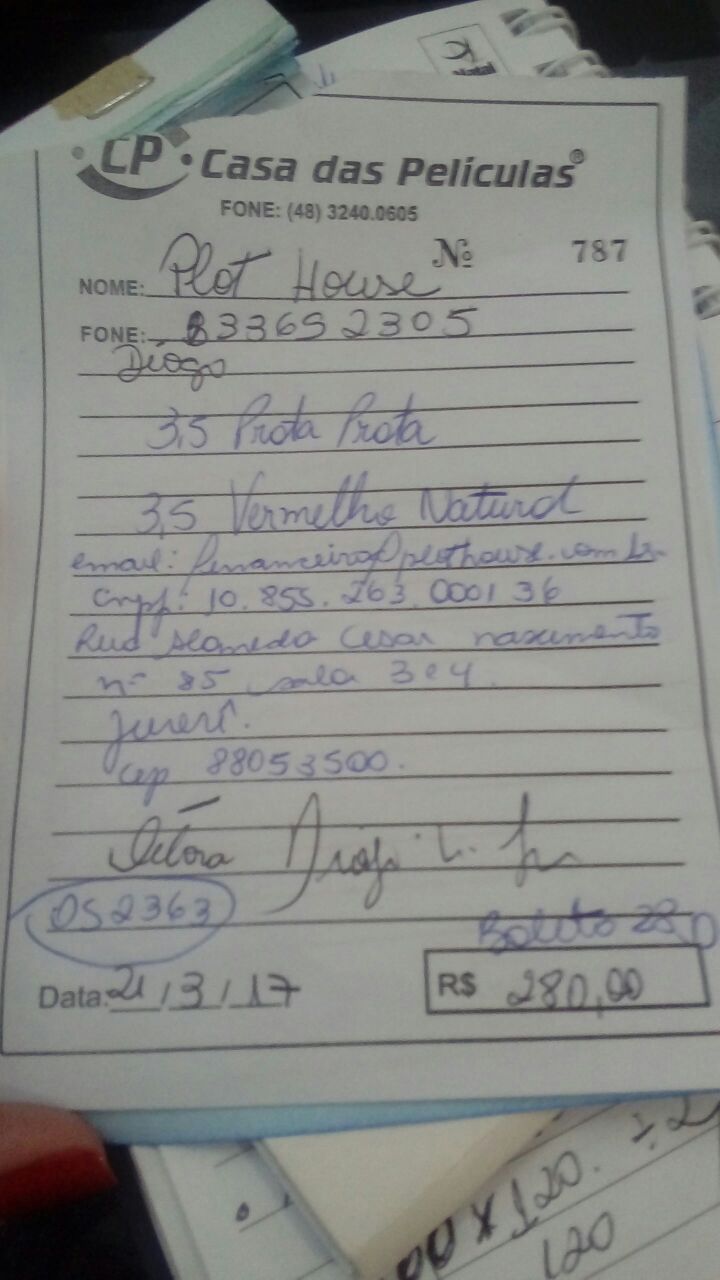 CP Casa das Películas®
FONE: (48) 3240.0605
Nº 787
NOME: Plot House
FONE: 33369 2305
Diogo
3,5 Prata Prata
3,5 Vermelho Natural
email: financeiro@plothouse.com.br
cnpj: 10.855.263.0001 36
Rua Alameda Cesar nascimento
nº 85 sala 3 e 4.
jurerê.
cep 88053500.
Débora
OS 2363
Boleto 28D
Data: 21/3/17 R$ 280,00
120.
120